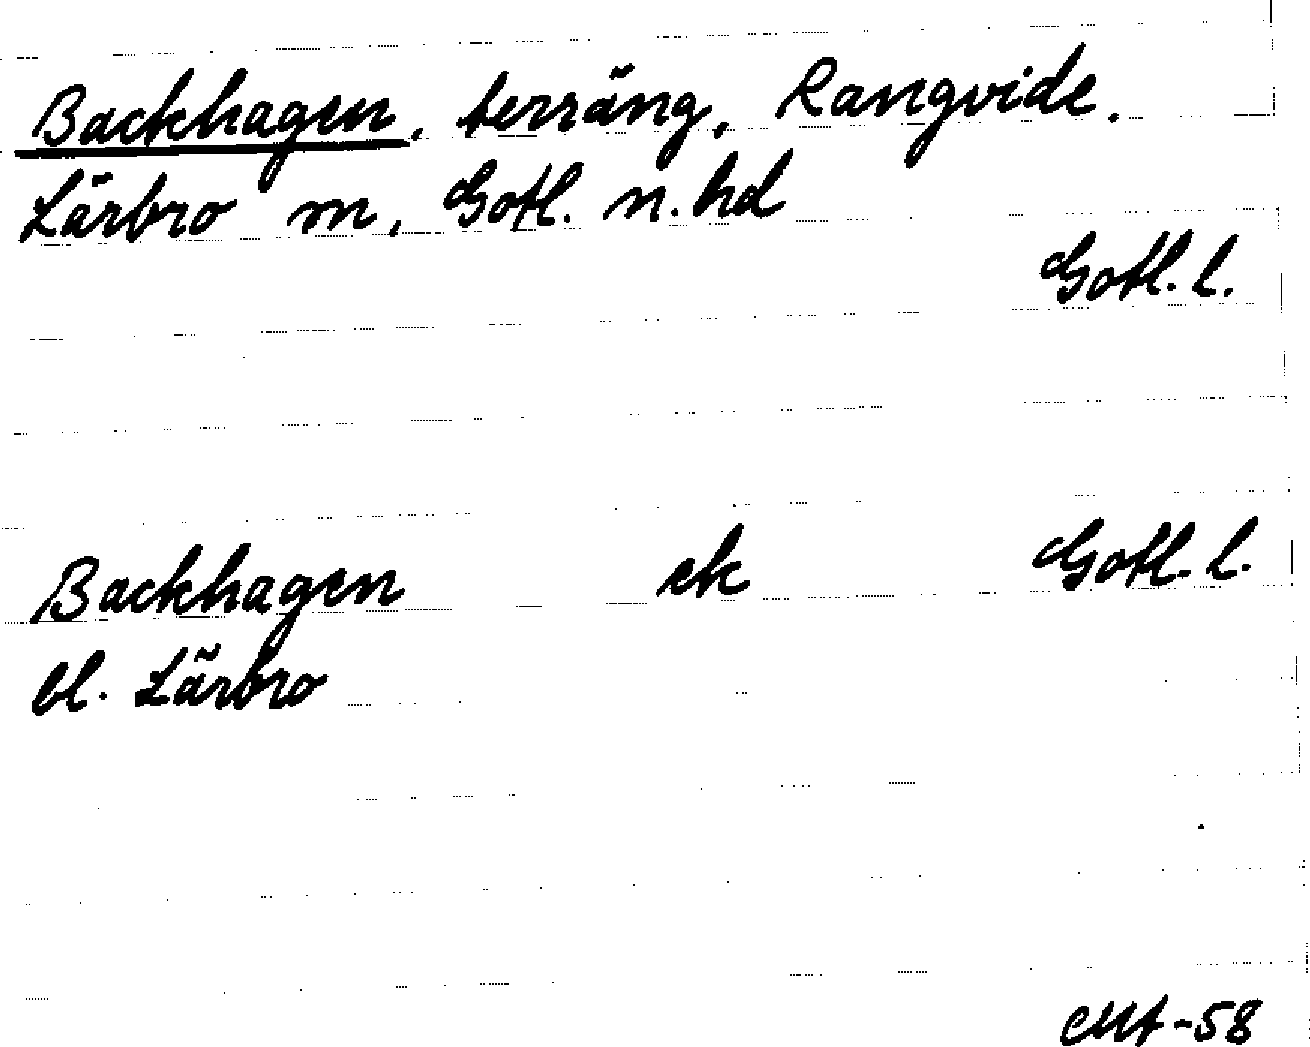 Backhagen, terräng, Rangvide.
Lärbro m, Gotl. n. hd
Gotl. l.
Backhagen ek Gotl. l.
bl. Lärbro
-58